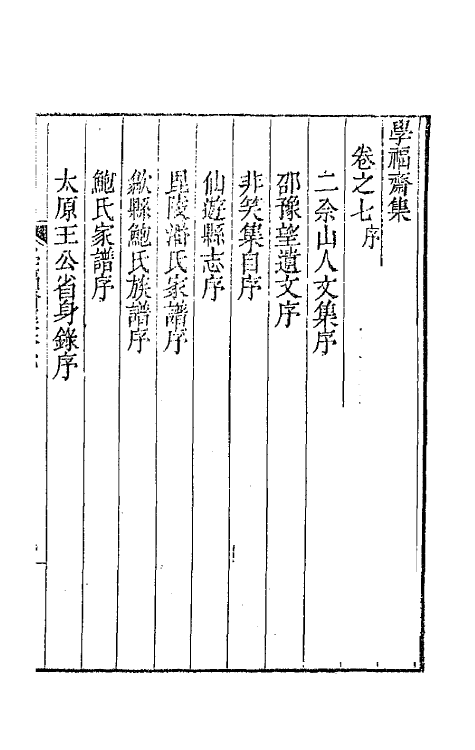 學福齋集
卷之七 序
二余山人文集序
邵豫望遺文序
非笑集自序
仙遊縣志序
毘陵潘氏家譜序
歙縣鮑氏族譜序
鮑氏家譜序
太原王公省身錄序